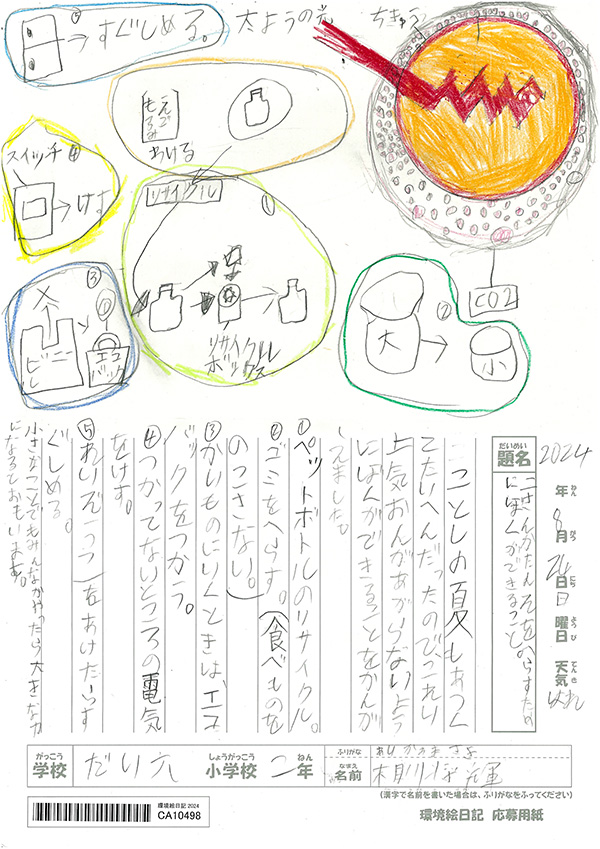 ⑤
→すぐしめる。
太ようの光
ちきゅう
スイッチ④
→けす
もえるごみ
わける
リサイクル
①
リサイクルボックス
③
ビニール
エコバック
CO2
②
大
→
小
2024年8月24日日曜日 天気 はれ
だいめい
題名
にさんかたんそをへらすため
にぼくができること。
ことしの夏もあつく
てたいへんだったので、これい
上気おんがあがらないよう
にぼくができることをかんが
えました。
①ペットボトルのリサイクル。
②ゴミをへらす。(食べものを
のこさない。)
③かいものにいくときは、エコ
バックをつかう。
④つかってないところの電気
をけす。
⑤れいぞうこをあけたらす
ぐしめる。
小さなことでもみんながやったら大きな力
になるとおもいます。
がっこう
学校
だい六
しょうがっこう
小学校
二
ねん
年
ふりがな
なまえ
名前
(漢字で名前を書いた場合は、ふりがなをふってください)
環境絵日記 2024
CA10498
環境絵日記 応募用紙